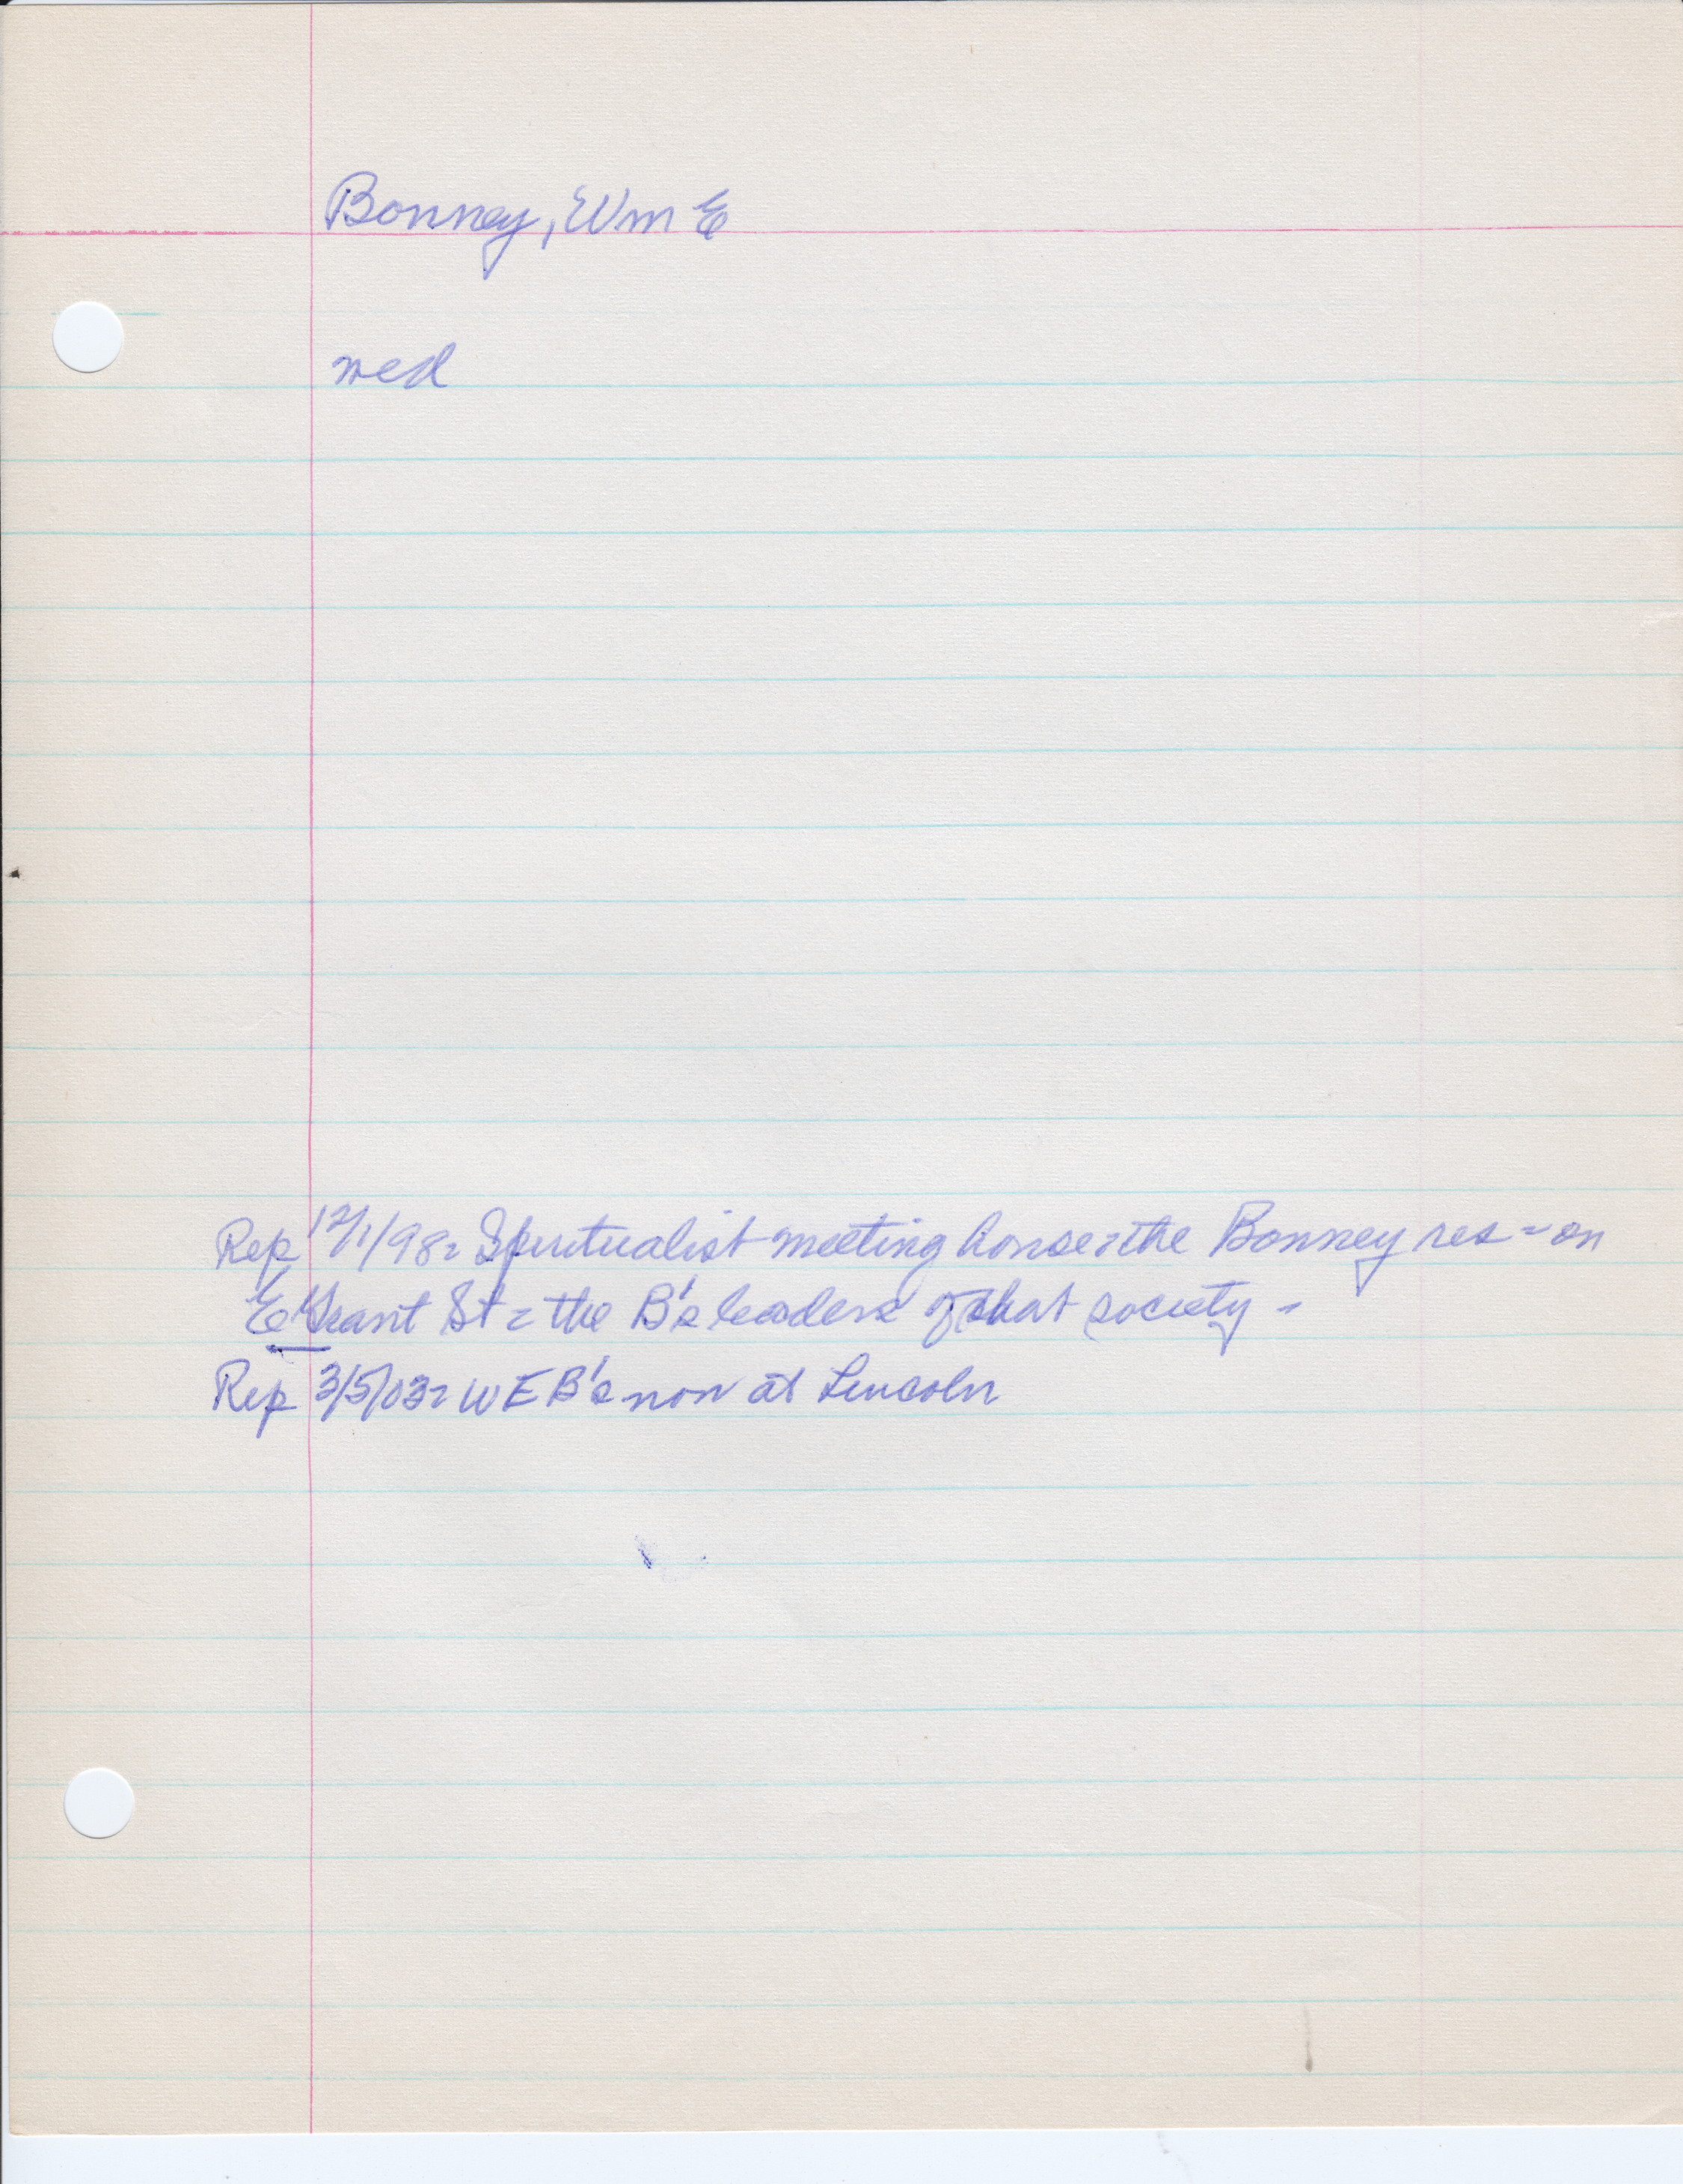 Bonney, Wm E
wed
Rep 12/1/98 = Spiritualist meeting house = the Bonney res = on
E Grant St = the B's leaders of that society -
Rep 3/5/03 = W E B's now at Lincoln